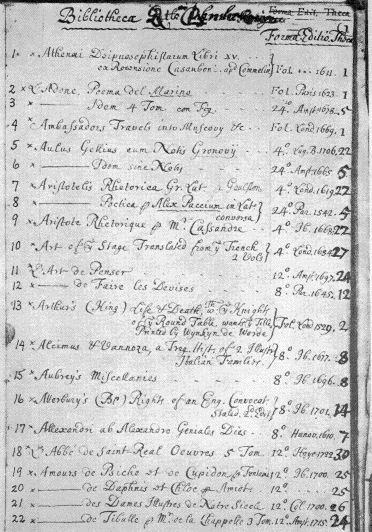 Bibliotheca
Forma Editio Theca
1 x Athenæi Deipnosophistarum Libri XV.
ex Recensione Casauboni. apd Commelin Fol ... 1611. 1
2 x L'Adone, Poema del Marino Fol. Paris 1623. 1
3 — Idem 4 Tom con Fig. 24.o Amst. 1678. 5
4 x Ambassadors Travels into Muscovy &c Fol. Lond 1669. 1
5 x Aulus Gellius cum Notis Gronovij 4.o Lug. B. 1706. 22
6 — Idem sine Notis 24.o Amst. 1665. 5
7 x Aristotelis Rhetorica Gr. Lat. Goulston 4.o Lond. 1619. 22
8 x — Poetica p Alex Paccium in Lat conversa 24.o Par. 1542. 5
9 x Aristote Rhetorique p Mr. Cassandre 4.o Ib. 1668. 22
10 x Art of ye Stage Translated from ye French 4.o Lond. 1684. 27
11 x L'Art de Penser 12.o Amst. 1697. 24
12 x — de Faire les Devises 8.o Par. 1645. 12
13 x Arthur's (King) Life & Death, w. ye Knights
of ye Round Table, wants ye Title Fol. Lond. 1529. 2
Printed by Wynkyn de Worde
14 x Alcimus & Vannoza, a Trag. Hist. of 2 Illustr.
Italian Families 8.o Ib. 1677. 8
15 x Aubrey's Miscellanies 8.o Ib. 1696. 8
16 x Atterbury's (Bp) Rights of an Eng. Convocat.
8.o Ib. 1701. 14
17 x Alexandri ab Alexandro Geniales Dies 8.o Hanov. 1610. 7
18 x L'Abbe de Saint Real Oeuvres 5 Tom. 12.o Haye 1722 30
19 x Amours de Psiche et de Cupidon p Fontaine 12.o Ib. 1700. 25
20 x — de Daphnis et Chloe p Amiot 12.o 25
21 x — des Dames Illustres de Notre Siecle 12.o Col. 1700. 26
22 x — de Tibulle p Mr. de la Chappelle 3 Tom. 12.o Amst. 1715. 24